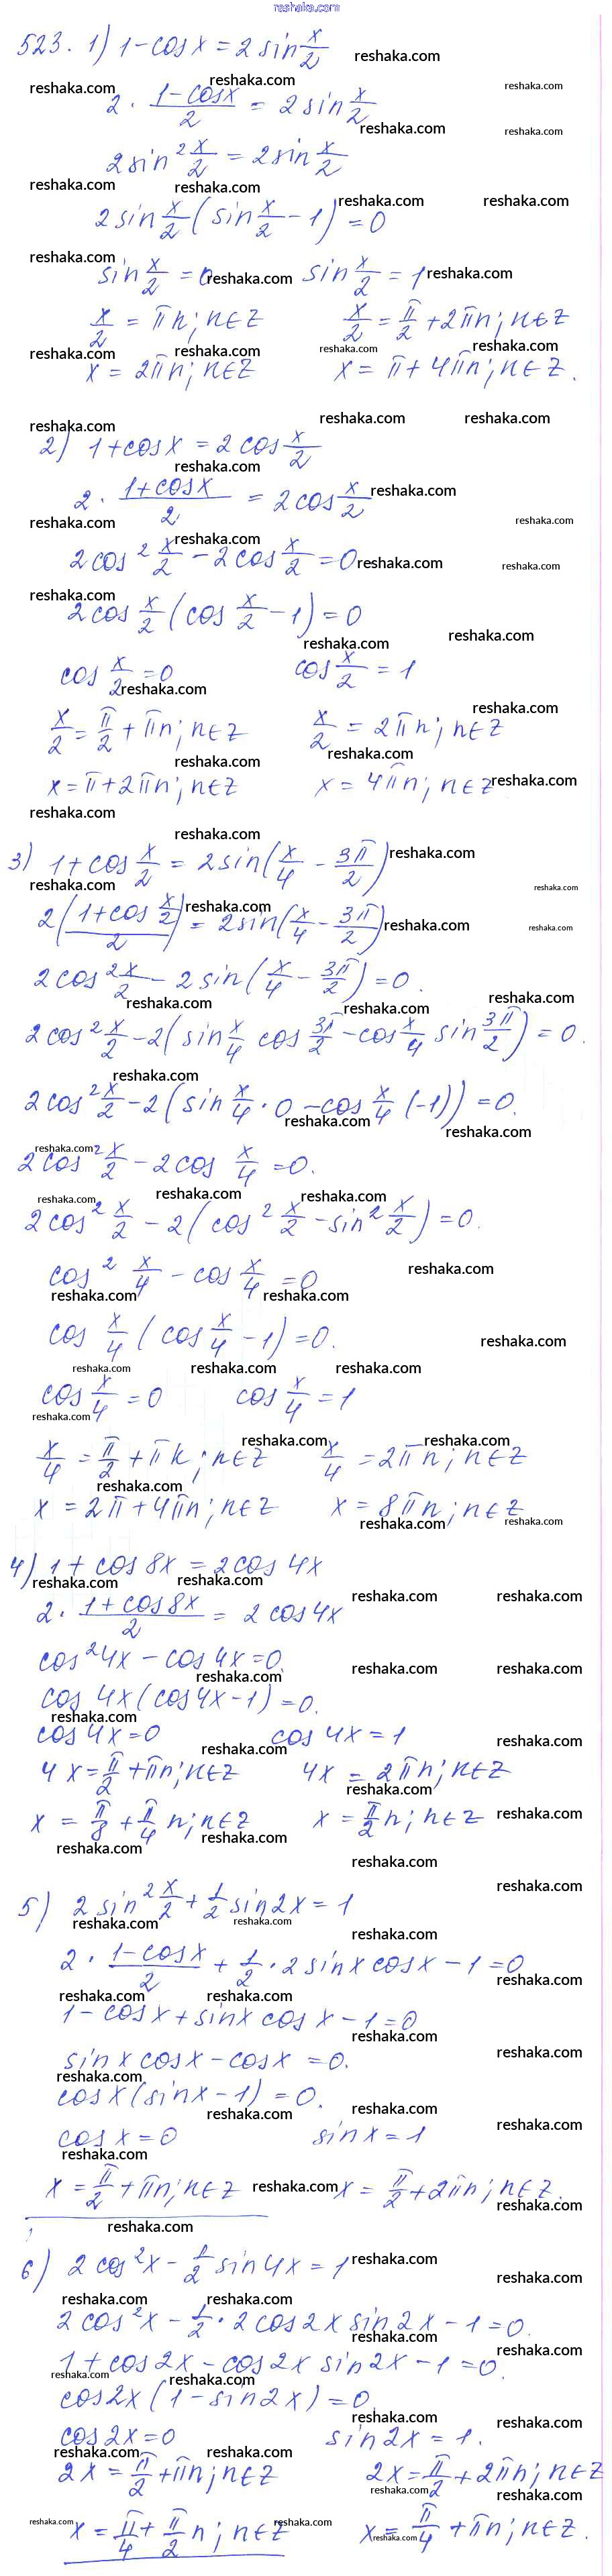 reshaka.com
523. 1) 1-cosx = 2 sin x/2
2 · (1-cosx)/2 = 2 sin x/2
2 sin² x/2 = 2 sin x/2
2 sin x/2 (sin x/2 - 1) = 0
sin x/2 = 0 sin x/2 = 1
x/2 = πn; n∈Z x/2 = π/2 + 2πn; n∈Z
x = 2πn; n∈Z x = π + 4πn; n∈Z.
2) 1+cosx = 2 cos x/2
2 · (1+cosx)/2 = 2 cos x/2
2 cos² x/2 - 2 cos x/2 = 0
2 cos x/2 (cos x/2 - 1) = 0
cos x/2 = 0 cos x/2 = 1
x/2 = π/2 + πn; n∈Z x/2 = 2πn; n∈Z
x = π + 2πn; n∈Z x = 4πn; n∈Z
3) 1+cos x/2 = 2 sin(x/4 - 3π/2)
2 (1+cos x/2)/2 = 2 sin(x/4 - 3π/2)
2 cos² x/2 - 2 sin(x/4 - 3π/2) = 0.
2 cos² x/2 - 2(sin x/4 cos 3π/2 - cos x/4 sin 3π/2) = 0.
2 cos² x/2 - 2(sin x/4 · 0 - cos x/4 (-1)) = 0.
2 cos² x/2 - 2 cos x/4 = 0.
2 cos² x/2 - 2(cos² x/2 - sin² x/2) = 0.
cos² x/4 - cos x/4 = 0
cos x/4 (cos x/4 - 1) = 0.
cos x/4 = 0 cos x/4 = 1
x/4 = π/2 + πk; n∈Z x/4 = 2πn; n∈Z
x = 2π + 4πn; n∈Z x = 8πn; n∈Z
4) 1 + cos 8x = 2 cos 4x
2 · (1+cos 8x)/2 = 2 cos 4x
cos² 4x - cos 4x = 0.
cos 4x (cos 4x - 1) = 0.
cos 4x = 0 cos 4x = 1
4x = π/2 + πn; n∈Z 4x = 2πn; n∈Z
x = π/8 + π/4 n; n∈Z x = π/2 n; n∈Z
5) 2 sin² x/2 + 1/2 sin 2x = 1
2 · (1-cosx)/2 + 1/2 · 2 sin x cos x - 1 = 0
1 - cos x + sin x cos x - 1 = 0
sin x cos x - cos x = 0.
cos x (sin x - 1) = 0.
cos x = 0 sin x = 1
x = π/2 + πn; n∈Z x = π/2 + 2πn; n∈Z.
6) 2 cos² x - 1/2 sin 4x = 1
2 cos² x - 1/2 · 2 cos 2x sin 2x - 1 = 0.
1 + cos 2x - cos 2x sin 2x - 1 = 0.
cos 2x (1 - sin 2x) = 0.
cos 2x = 0 sin 2x = 1.
2x = π/2 + πn; n∈Z 2x = π/2 + 2πn; n∈Z
x = π/4 + π/2 n; n∈Z x = π/4 + πn; n∈Z.